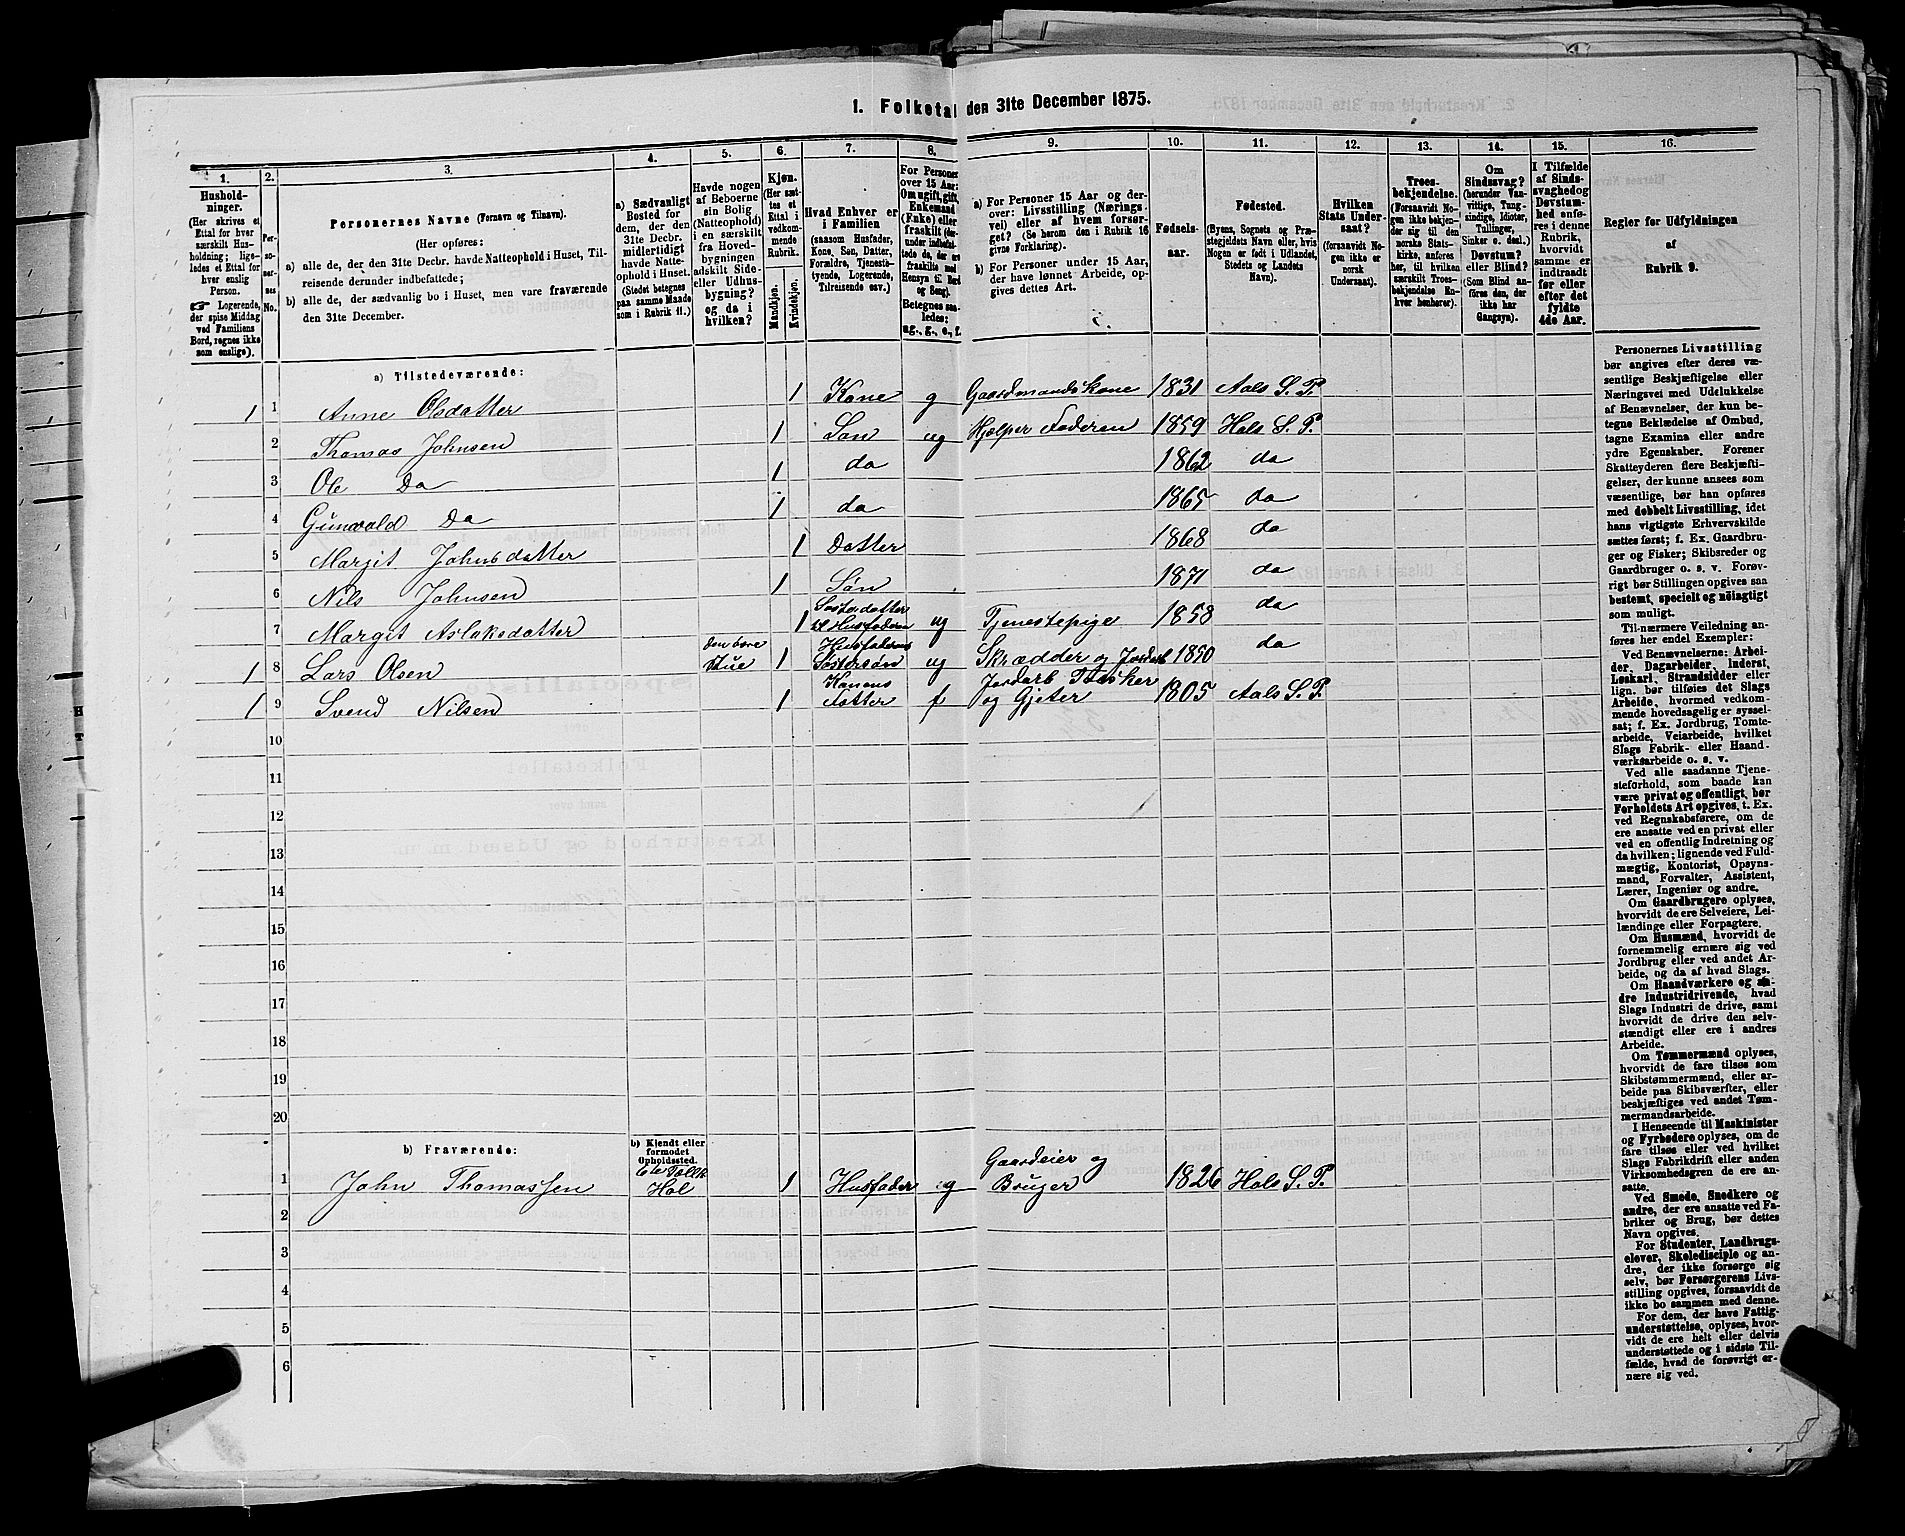 1. Folketal den 31te December 1875.
1. 2. 3. 4. 5. 6. 7. 8. 9. 10. 11. 12. 13. 14. 15. 16.
Hushold-
ninger.
(Her skrives et
Ettal for hver
særskilt Hus-
holdning; lige-
ledes et Ettal for
hver enslig
Person.
☞ Logerende,
der spise Middag
ved Familiens
Bord, regnes ikke
som enslige).
Per-
so-
ner-
nes
No.
Personernes Navne (Fornavn og Tilnavn).
(Her opføres:
a) alle de, der den 31te Decbr. havde Natteophold i Huset, Til-
reisende derunder indbefattede;
b) alle de, der sædvanlig bo i Huset, men vare fraværende
den 31te December.
a) Sædvanligt
Bosted for
dem, der den
31te Decbr.
midlertidigt
havde Natte-
ophold i Huset.
(Stedet betegnes
paa samme Maade
som i Rubrik 11.)
Havde nogen
af Beboerne
sin Bolig
(Natteophold)
i en særskilt
fra Hoved-
bygningen
adskilt Side-
eller Udhus-
bygning?
og da i
hvilken?
Kjøn.
(Her sæt-
tes et
Ettal i
vedkom-
mende
Rubrik.)
Mandkjøn.
Kvindekjøn.
Hvad Enhver er
i Familien
(saasom Husfader,
Kone, Søn, Datter,
Forældre, Tjeneste-
tyende, Logerende,
Tilreisende osv.)
For Personer
over 15 Aar:
Om ugift, gift,
Enkemand
(Enke) eller
fraskilt (der-
under indbefat-
tede de, der ere
fraskilte med
Hensyn til Bord
og Seng).
Betegnes saa-
ledes:
ug., g., e., f.
a) For Personer 15 Aar og der-
over: Livsstilling (Nærings-
vei) eller af hvem forsør-
get? (Se herom den i Rubrik 16
givne Forklaring).
b) For Personer under 15 Aar,
der have lønnet Arbeide, op-
gives dettes Art.
Fødsels-
aar.
Fødested.
(Byens, Sognets og Præ-
stegjeldets Navn eller, hvis
Nogen er født i Udlandet,
Stedets og Landets
Navn).
Hvilken
Stats Under-
saat?
(forsaavidt No-
gen ikke er
norsk
Undersaat).
Troes-
bekjendelse.
(Forsaavidt No-
gen ikke bekjen-
der sig til den
norske Stats-
kirke, anføres
her, til hvilken
særskilt Troes-
bekjendelse En-
hver henhører).
Om
Sindssvag?
(herunder Van-
vittige, Tung-
sindige, Idioter,
Tullinger,
Sinker o. desl.)
Døvstum?
eller Blind?
(Som Blind an-
føres den, der
ikke har
Gangsyn).
I Tilfælde
af Sinds-
svaghed og
Døvstum-
hed anfø-
res i denne
Rubrik,
hvorvidt
samme er
indtraadt
før eller
efter det
fyldte
4de Aar.
Regler for Udfyldningen
af
Rubrik 9.
a) Tilstedeværende:
1 1 Anne Olsdatter 1 Kone g Gaardmandskone 1831 Aals S. P.
2 Thomas Johnsen 1 Søn ug Hjælper Faderen 1859 Hols S. P.
3 Ole Do 1 do 1862 do
4 Gunvald Do 1 do 1865 do
5 Margit Johnsdatter 1 Datter 1868 do
6 Nils Johnsen 1 Søn 1871 do
7 Margit Aslaksdatter 1 Søsterdatter til Husfaderen ug Tjenestepige 1858 do
1 8 Lars Olsen Stue 1 Husfaderens Søstersøn ug Skrædder og Jordarb 1890 do
1 9 Svend Nilsen 1 Konens Fatter f Jordarb og Gjeter 1805 Aals S. P.
10
11
12
13
14
15
16
17
18
19
20
b) Fraværende:
b) Kjendt eller
formodet
Opholdssted.
1 John Thomassen Hol 1 Husfader g Gaardeier og Bruger 1826 Hols S. P.
2
3
4
5
6
Personernes Livsstilling
bør angives efter deres væ-
sentlige Beskjæftigelse eller
Næringsvei med Udelukkelse
af Benævnelser, der kun be-
tegne Beklædelse af Ombud,
tagne Examina eller andre
ydre Egenskaber. Forener
Skatteyderen flere Beskjæfti-
gelser, der kunne ansees som
væsentlige, bør han opføres
med dobbelt Livsstilling, idet
hans vigtigste Erhvervskilde
sættes først; f. Ex. Gaardbru-
ger og Fisker; Skibsreder og
Gaardbruger o. s. v. Forøv-
rigt bør Stillingen opgives saa
bestemt, specielt og nøiagtigt
som muligt.
Til nærmere Veiledning an-
føres her endel Exempler:
Ved Benævnelserne: Arbei-
der, Dagarbeider, Inderst,
Løskarl, Strandsidder eller
lign. bør tilføies det Slags
Arbeide, hvormed vedkom-
mende hovedsagelig er syssel-
sat; f. Ex. Jordbrug, Tomte-
arbeide, Veiarbeide, hvilket
Slags Fabrik- eller Haand-
værksarbeide o. s. v.
Ved alle saadanne Tjene-
steforhold, som baade kan
være privat og offentligt, bør
Forholdets Art opgives, t. Ex.
ved Regnskabsførere, om de
ere ansatte ved en privat eller
ved en offentlig Indretning og
da hvilken; lignende ved Fuld-
mægtig, Kontorist, Opsyns-
mand, Forvalter, Assistent,
Lærer, Ingeniør og andre.
Om Gaardbrugere oplyses,
hvorvidt de ere Selveiere, Lei-
lændinge eller Forpagtere.
Om Husmænd, hvorvidt de
fornemmelig ernære sig ved
Jordbrug eller ved andet Ar-
beide, og da af hvad Slags.
Om Haandværkere og an-
dre Industridrivende, hvad
Slags Industri de drive, samt
hvorvidt de drive den selv-
stændigt eller ere i andres
Arbeide.
Om Tømmermænd oplyses,
hvorvidt de fare tilsøs som
Skibstømmermænd, eller ar-
beide paa Skibsværfter, eller
beskjæftiges ved andet Tøm-
mermandsarbeide.
I Henseende til Maskinister
og Fyrbødere oplyses, om de
fare tilsøs eller ved hvilket
Slags Fabrikdrift eller anden
Virksomhedsgren de ere an-
satte.
Ved Smede, Snedkere og
andre, der ere ansatte ved Fa-
briker og Brug, bør dettes
Navn opgives.
For Studenter, Landbrugs-
elever, Skoledisciple og an-
dre, der ikke forsørge sig
selv, bør Forsørgerens Livs-
stilling opgives, forsaavidt de
ikke bo sammen med denne.
For dem, der have Fattig-
understøttelse, oplyses, hvor-
vidt de ere helt eller delvis
understøttede og i sidste Til-
fælde, hvad de forøvrigt er-
nære sig ved.